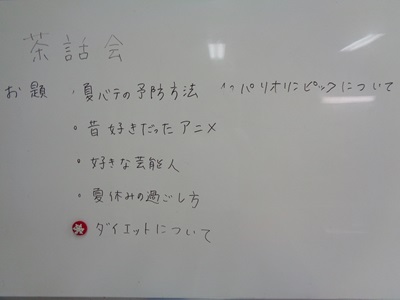 茶話会
お題 ・夏バテの予防方法 ・パリオリンピックについて
・昔好きだったアニメ
・好きな芸能人
・夏休みの過ごし方
ダイエットについて